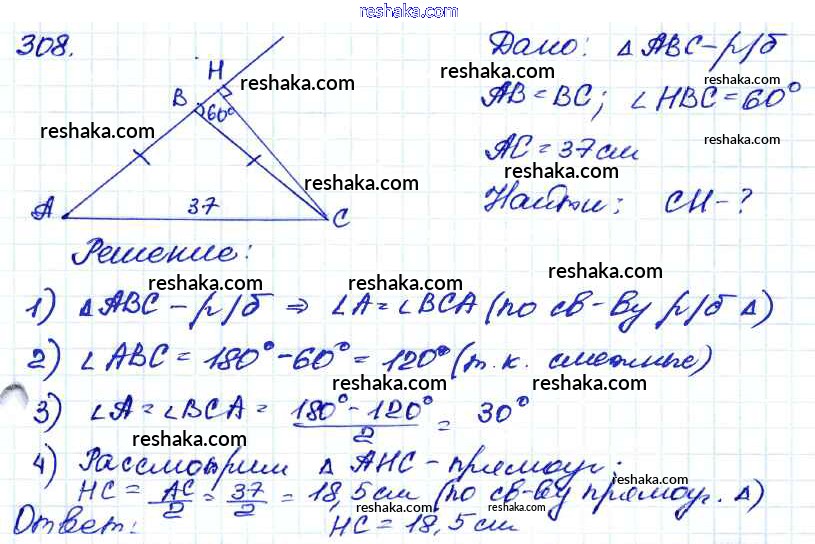 reshaka.com
308.
Дано: △ABC – р/б
H
reshaka.com
reshaka.com
B
60°
AB = BC; ∠HBC = 60°
reshaka.com
reshaka.com
AC = 37 см
reshaka.com
Найти: CH – ?
A
37
C
reshaka.com
Решение:
reshaka.com
reshaka.com
1) △ABC – р/б ⇒ ∠A = ∠BCA (по св-ву р/б △)
reshaka.com
reshaka.com
2) ∠ABC = 180° – 60° = 120° (т. к. смежные)
reshaka.com
reshaka.com
3) ∠A = ∠BCA = (180° – 120°)/2 = 30°
reshaka.com
reshaka.com
4) Рассмотрим △AHC – прямоуг:
reshaka.com
reshaka.com
HC = AC/2 = 37/2 = 18,5 см (по св-ву прямоуг. △)
Ответ: HC = 18,5 см
reshaka.com
reshaka.com